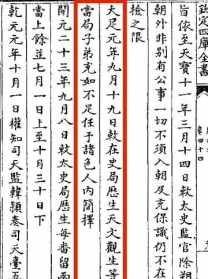 欽定四庫全書
旨依至天寶十一年三月十四日敕太史監官除朔
朝外非别有公事一切不須入朝及充保識仍不在
檢之限
大足元年九月十九日敕在史局歴生天文觀生等
當局子弟充如不足任于諸色人内簡擇
開元二十三年九月八日敕太史局歴生每番留兩
當上餘並七月一日上至十月三十日下
乾元元年十月一日權知司天監韓頴奏司天臺五